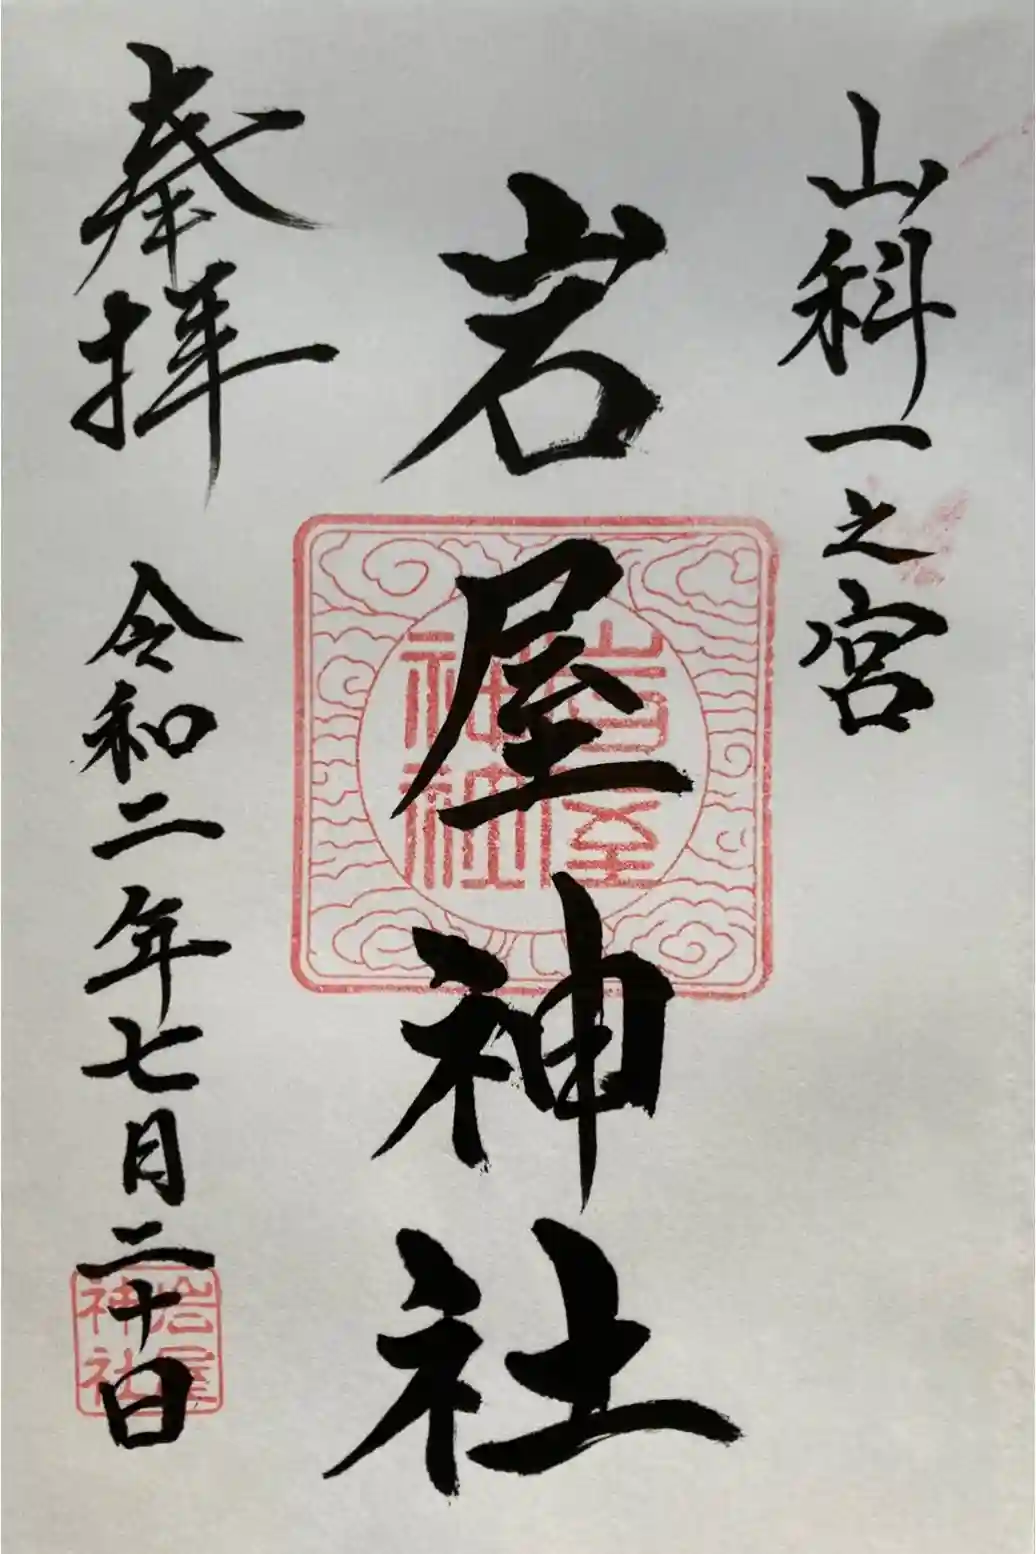 山科一之宮
岩屋神社
奉拝
令和二年七月二十日
岩屋
神社
岩屋
神社